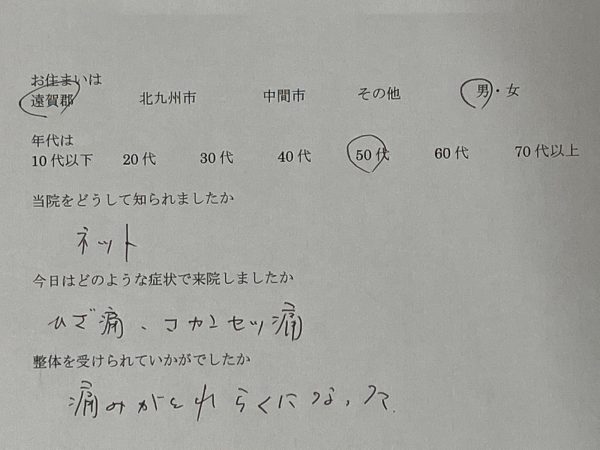 お住まいは
遠賀郡 北九州市 中間市 その他 男・女
年代は
10代以下 20代 30代 40代 50代 60代 70代以上
当院をどうして知られましたか
ネット
今日はどのような症状で来院しましたか
ひざ痛、コカンセツ痛
整体を受けられていかがでしたか
痛みがとれらくになった。